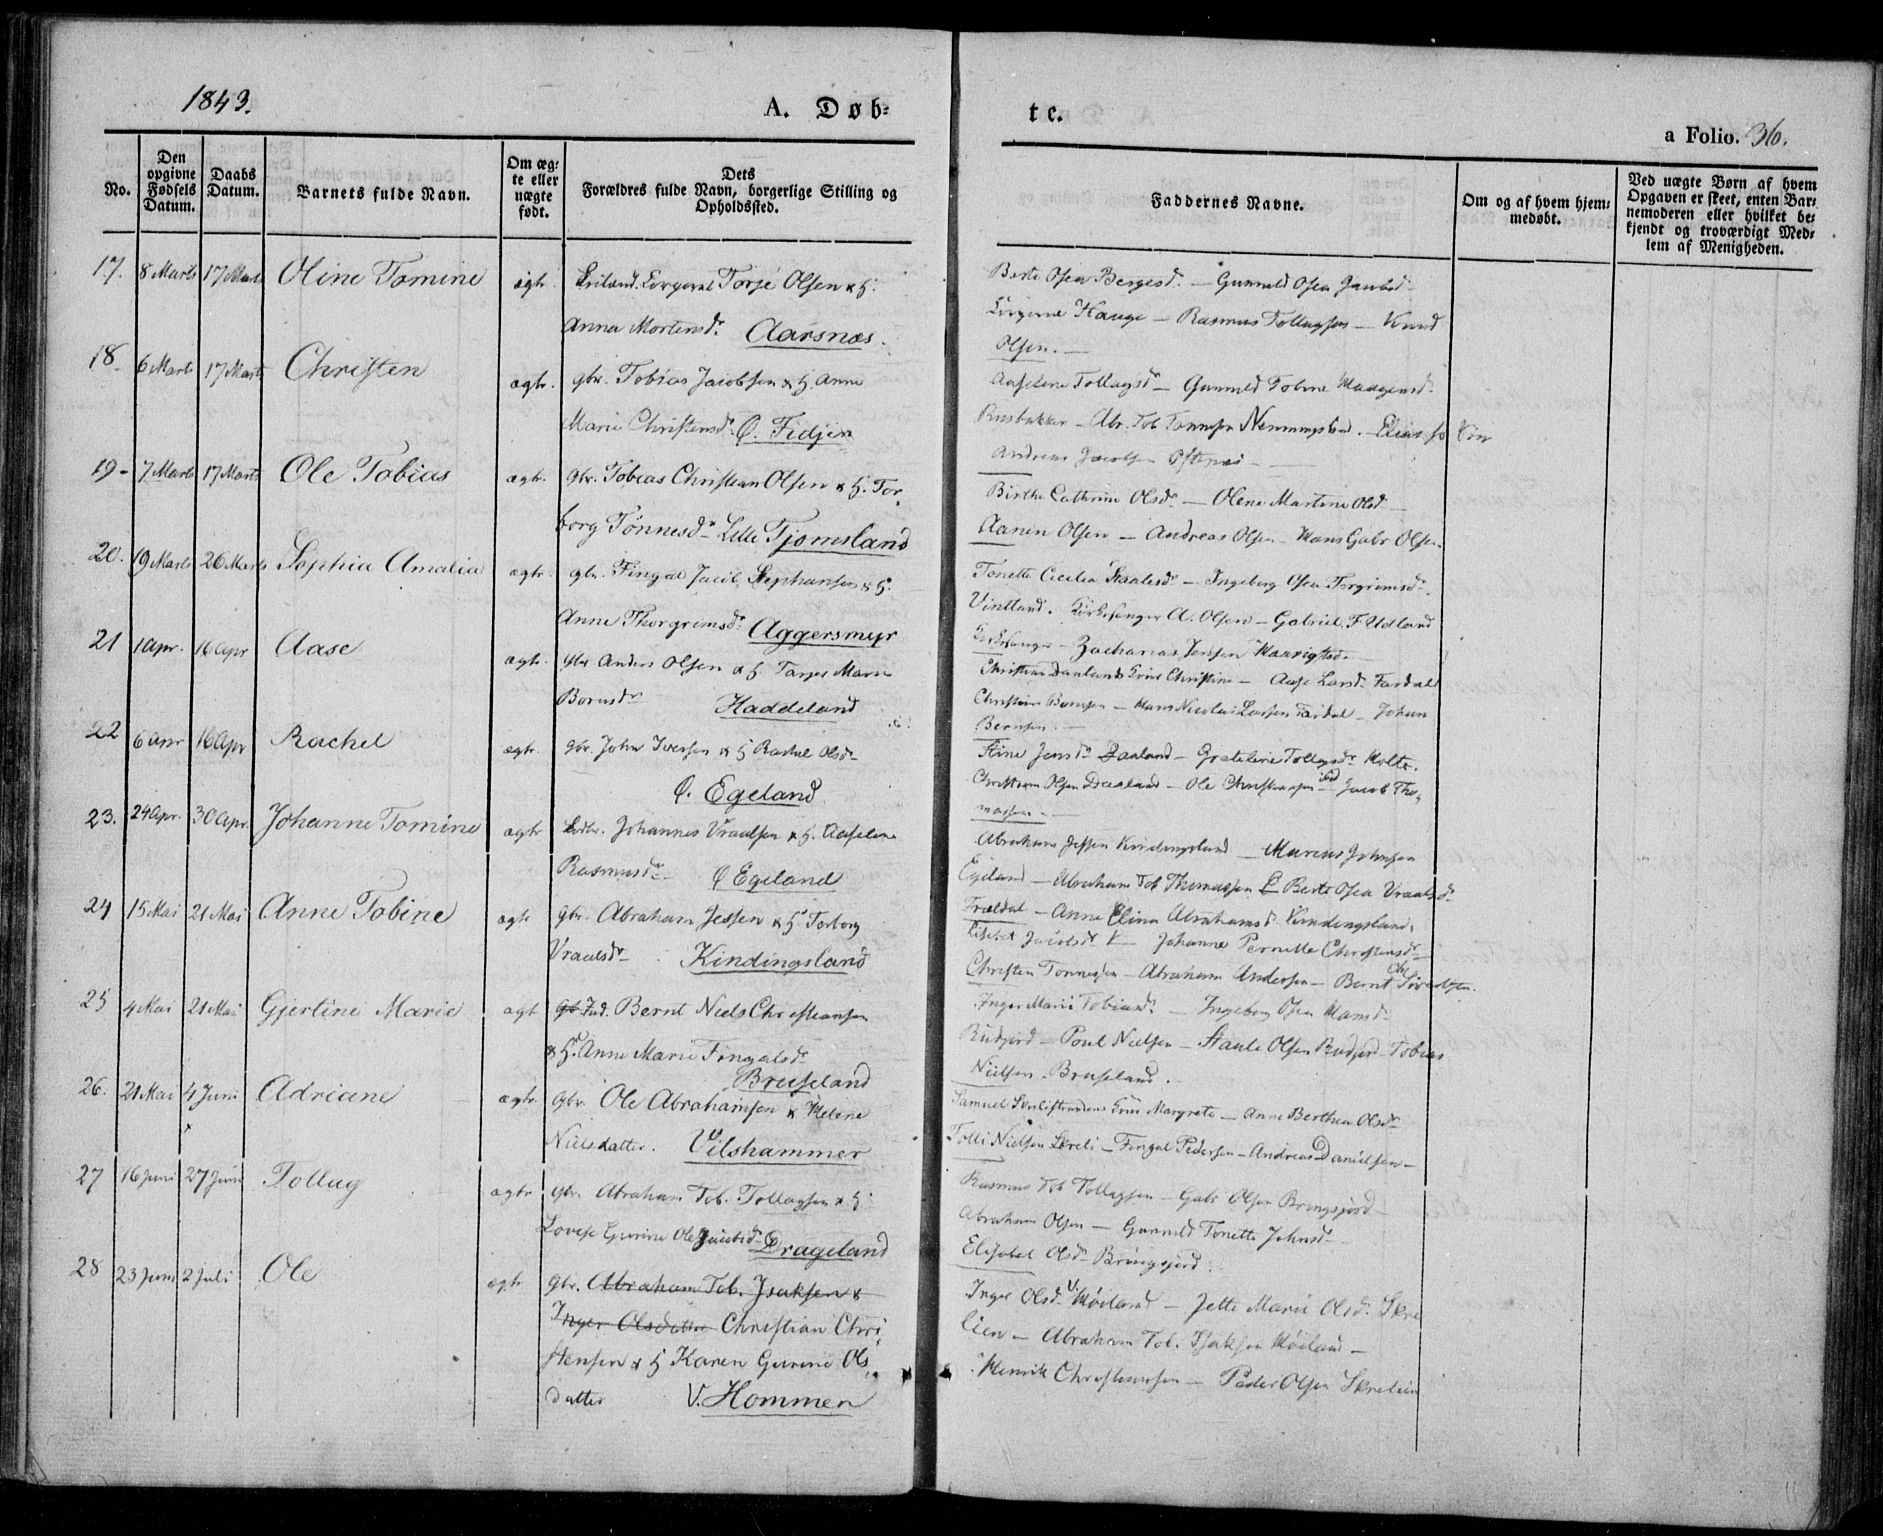 1843.
A. Døb-
te.
a Folio. 36.
No.
Den opgivne Fødsels Datum.
Daabs Datum.
Barnets fulde Navn.
Om ægte eller uægte født.
Dets Forældres fulde Navn, borgerlige Stilling og Opholdssted.
Faddernes Navne.
Om og af hvem hjemmedøbt.
Ved uægte Børn af hvem Opgaven er skeet, enten Barnemoderen eller hvilket bekjendt og troværdigt Medlem af Menigheden.
17. 8 Marts 17 Marts Oline Tomine ægte. Torje Olsen & H.
Anna Mortensd. Aarsnæs.
Berte Osea Bergesd. — Gunneld Osea
Hauge — Rasmus Tollagsen — Knud
Olsen. —
18. 6 Marts 17 Marts Christen ægte. gbr. Tobias Jacobsen & H Anne
Marie Christensd. Ø. Fidje
Aaselene Tollagsd — Gunneld Tobine
Abr. Tob Tønnesen
Andreas Jacobsen
19 - 7 Marts 17 Marts Ole Tobias ægte. gbr. Tobias Christian Olsen & H. Tor-
borg Tønnesd — Lille Tjomsland
Birthe Cathrine Olsd — Olene Martine Olsd —
Aanen Olsen — Andreas Olsen — Hans Gabr Olsen
20. 19 Marts 26 Marts Sophia Amalia ægte. gbr. Fingal Jacob Stephansen & H.
Anne Thorgrimsd. Aggersmyr
Tonette Cecilia — Ingeborg Osea Torgrimsd.
Vintland. Kirkesanger A. Olsen — Gabriel F Udland
21 1 Apr. 16 Apr Aase ægte. gbr Anders Olsen & H. Marie
Berntsd Haddeland
Kirkesanger — Zacharias Jensen
Christine — Aase Larsd. Fardal
Christian Berntsen — Hans Nicolai Larsen Fardal — Johan
Berntsen. —
22 6 Apr 16 Apr Rachel ægte. gbr. John Iversen & H Rachel Olsd
Ø. Egeland
Stine Jensd Daaland — Tollagsd. Holte.
Christian Olsen Daaland — Ole Christiansen ibd Jacob Tho-
massen —
23. 24 Apr. 30 Apr. Johanne Tomine ægte Johannes Vraalsen & H. Aaselene
Rasmusd — Ø Egeland
Abraham Jessen Kindingsland — Marcus Johnsen
Egeland — Abraham Tob Thomassen Berte Osea Vraalsd
24 15 Mai 21 Mai Anne Tobine ægte gbr. Abraham Jessen & H Torborg
Vraalsd — Kindingsland
Trældal — Anne Elina Abrahamsd Kindingsland.
Jacobsd — Johanne Pernille Christensd
Christen Tønnesen — Abraham Andersen — Bernt
25 4 Mai 21 Mai Gjertine Marie ægte Ind. Bernt Niels Christiansen
& H. Anne Marie Fingalsd
Bruseland
Inger Marie Tobiasd. — Ingeborg Osea Hansd
Rudjord — Poul Nielsen — Staale Olsen Rudjord — Tobias
Nielsen Bruseland.
26. 21 Mai 4 Juni Adriane ægte. gbr. Ole Abrahamsen & Helene
Nielsdatter. Vilshammer
Samuel Margrete — Anne Berthea Olsd
Tolli Nielsen Skreli — Fingal Pedersen — Andreas Danielsen —
27 16 Juni 27 Juni Tollag ægte gbr. Abraham Tob. Tollagsen & H
Lovise Gurine Ole Jacobsd. Drageland
Rasmus Tob Tollagsen — Gabr Olsen Bringsjord —
Abraham Olsen — Gunneld Tonette Johnsd —
Elisabet Olsd Bringsjord.
28 23 Juni 2 Juli Ole ægte gbr. Abraham Tob. Isaksen &
Inger Olsdatter Christian Chri-
stensen & H Karen Gurine Ols-
datter V. Hommen
Inger Olsd. V. Møiland — Jette Marie Olsd. Skre-
lien — Abraham Tob. Isaksen Møiland —
Henrik Christiansen — Peder Olsen Skrelien